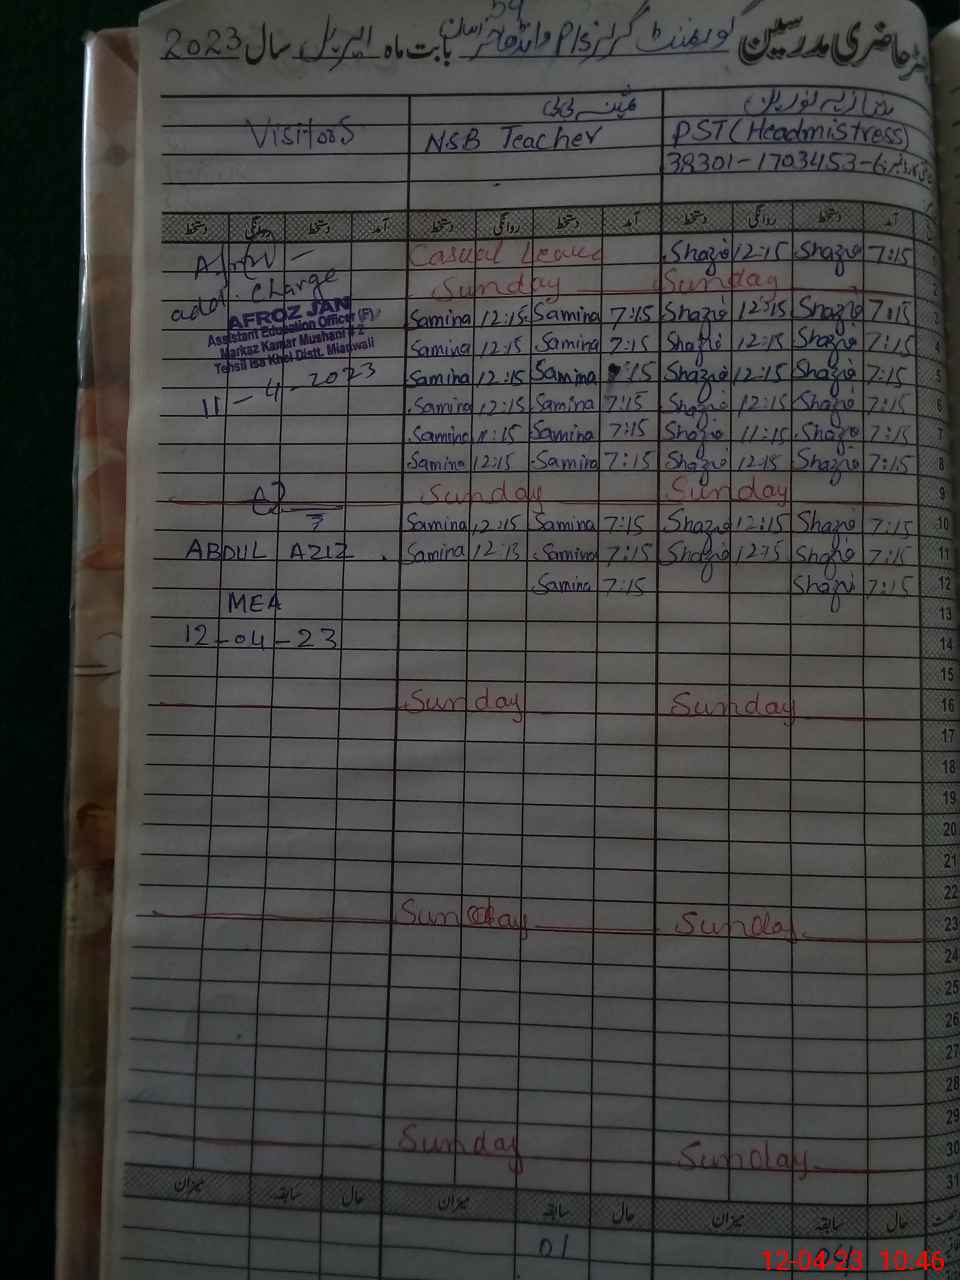 حاضری مدرسین گورنمنٹ گرلز P/s بابت ماہ اپریل سال 2023
Visitors
N.S.B Teacher PST (Headmistress)
38301-1703453-
دستخط روانگی دستخط آمد دستخط روانگی دستخط آمد دستخط روانگی دستخط آمد
Casual Leave Shazia 12:15 Shazia 7:15 1
addl. charge Sunday Sunday 2
AFROZ JAN
Assistant Education Officer (F)
Markaz Kamar Mushani # 2
Tehsil Isa Khel Distt. Mianwali
11-4-2023
Samina 12:15 Samina 7:15 Shazia 12:15 Shazia 7:15 3
Samina 12:15 Samina 7:15 Shazia 12:15 Shazia 7:15 4
Samina 12:15 Samina 7:15 Shazia 12:15 Shazia 7:15 5
Samina 12:15 Samina 7:15 Shazia 12:15 Shazia 7:15 6
Samina 11:15 Samina 7:15 Shazia 11:15 Shazia 7:15 7
Samina 12:15 Samina 7:15 Shazia 12:15 Shazia 7:15 8
Sunday Sunday 9
Samina 12:15 Samina 7:15 Shazia 12:15 Shazia 7:15 10
ABDUL AZIZ Samina 12:15 Samina 7:15 Shazia 12:15 Shazia 7:15 11
MEA Samina 7:15 Shazia 7:15 12
13
12-04-23 14
15
Sunday Sunday 16
17
18
19
20
21
22
Sunday Sunday 23
24
25
26
27
28
29
Sunday Sunday 30
31
میزان سابقہ حال میزان سابقہ حال میزان سابقہ حال
01
12-04-23 10:46